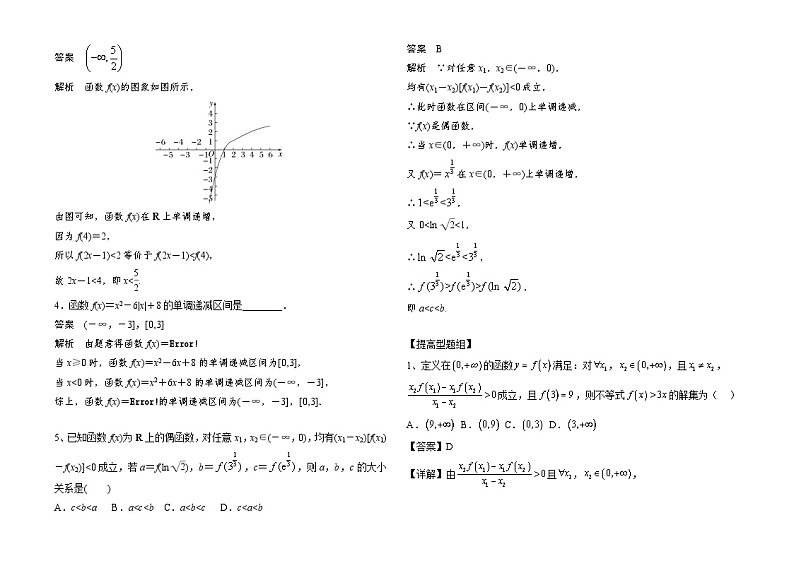 答案 (−∞, 5/2)
解析 函数 f(x)的图象如图所示,
y
4
3
2
1
−6 −4 −2
−5 −3 −1 O 1 2 3 4 5 6 x
−1
−2
−3
−4
−5
由图可知,函数 f(x)在 R 上单调递增,
因为 f(4)=2,
所以 f(2x-1)<2 等价于 f(2x-1)<f(4),
故 2x-1<4,即 x<5/2.
4.函数 f(x)=x2-6|x|+8 的单调递减区间是________.
答案 (-∞,-3],[0,3]
解析 由题意得函数 f(x)=Error!
当 x≥0 时,函数 f(x)=x2-6x+8 的单调递减区间为[0,3],
当 x<0 时,函数 f(x)=x2+6x+8 的单调递减区间为(-∞,-3],
综上,函数 f(x)=Error!的单调递减区间为(-∞,-3],[0,3].
5、已知函数 f(x)为 R 上的偶函数,对任意 x1,x2∈(-∞,0),均有(x1-x2)[f(x1)
-f(x2)]<0 成立,若 a=f(ln √2),b= f(3^(1/3)),c= f(e^(1/3)),则 a,b,c 的大小
关系是( )
A.c<b<a B.a<c<b C.a<b<c D.c<a<b
答案 B
解析 ∵对任意 x1,x2∈(-∞,0),
均有(x1-x2)[f(x1)-f(x2)]<0 成立,
∴此时函数在区间(-∞,0)上单调递减,
∵f(x)是偶函数,
∴当 x∈(0,+∞)时,f(x)单调递增,
又 f(x)= x^(1/3) 在 x∈(0,+∞)上单调递增,
∴1<e^(1/3)<3^(1/3),
又 0<ln √2<1,
∴ln √2<e^(1/3)<3^(1/3),
∴ f(3^(1/3))>f(e^(1/3))>f(ln √2),
即 a<c<b.
【提高型题组】
1、定义在(0,+∞)的函数 y = f(x)满足:对∀x₁,x₂∈(0,+∞),且 x₁≠x₂,
(x₂f(x₁)−x₁f(x₂))/(x₁−x₂)>0 成立,且 f(3)=9,则不等式 f(x)>3x 的解集为( )
A.(9,+∞) B.(0,9) C.(0,3) D.(3,+∞)
【答案】D
【详解】由(x₂f(x₁)−x₁f(x₂))/(x₁−x₂)>0 且∀x₁,x₂∈(0,+∞),